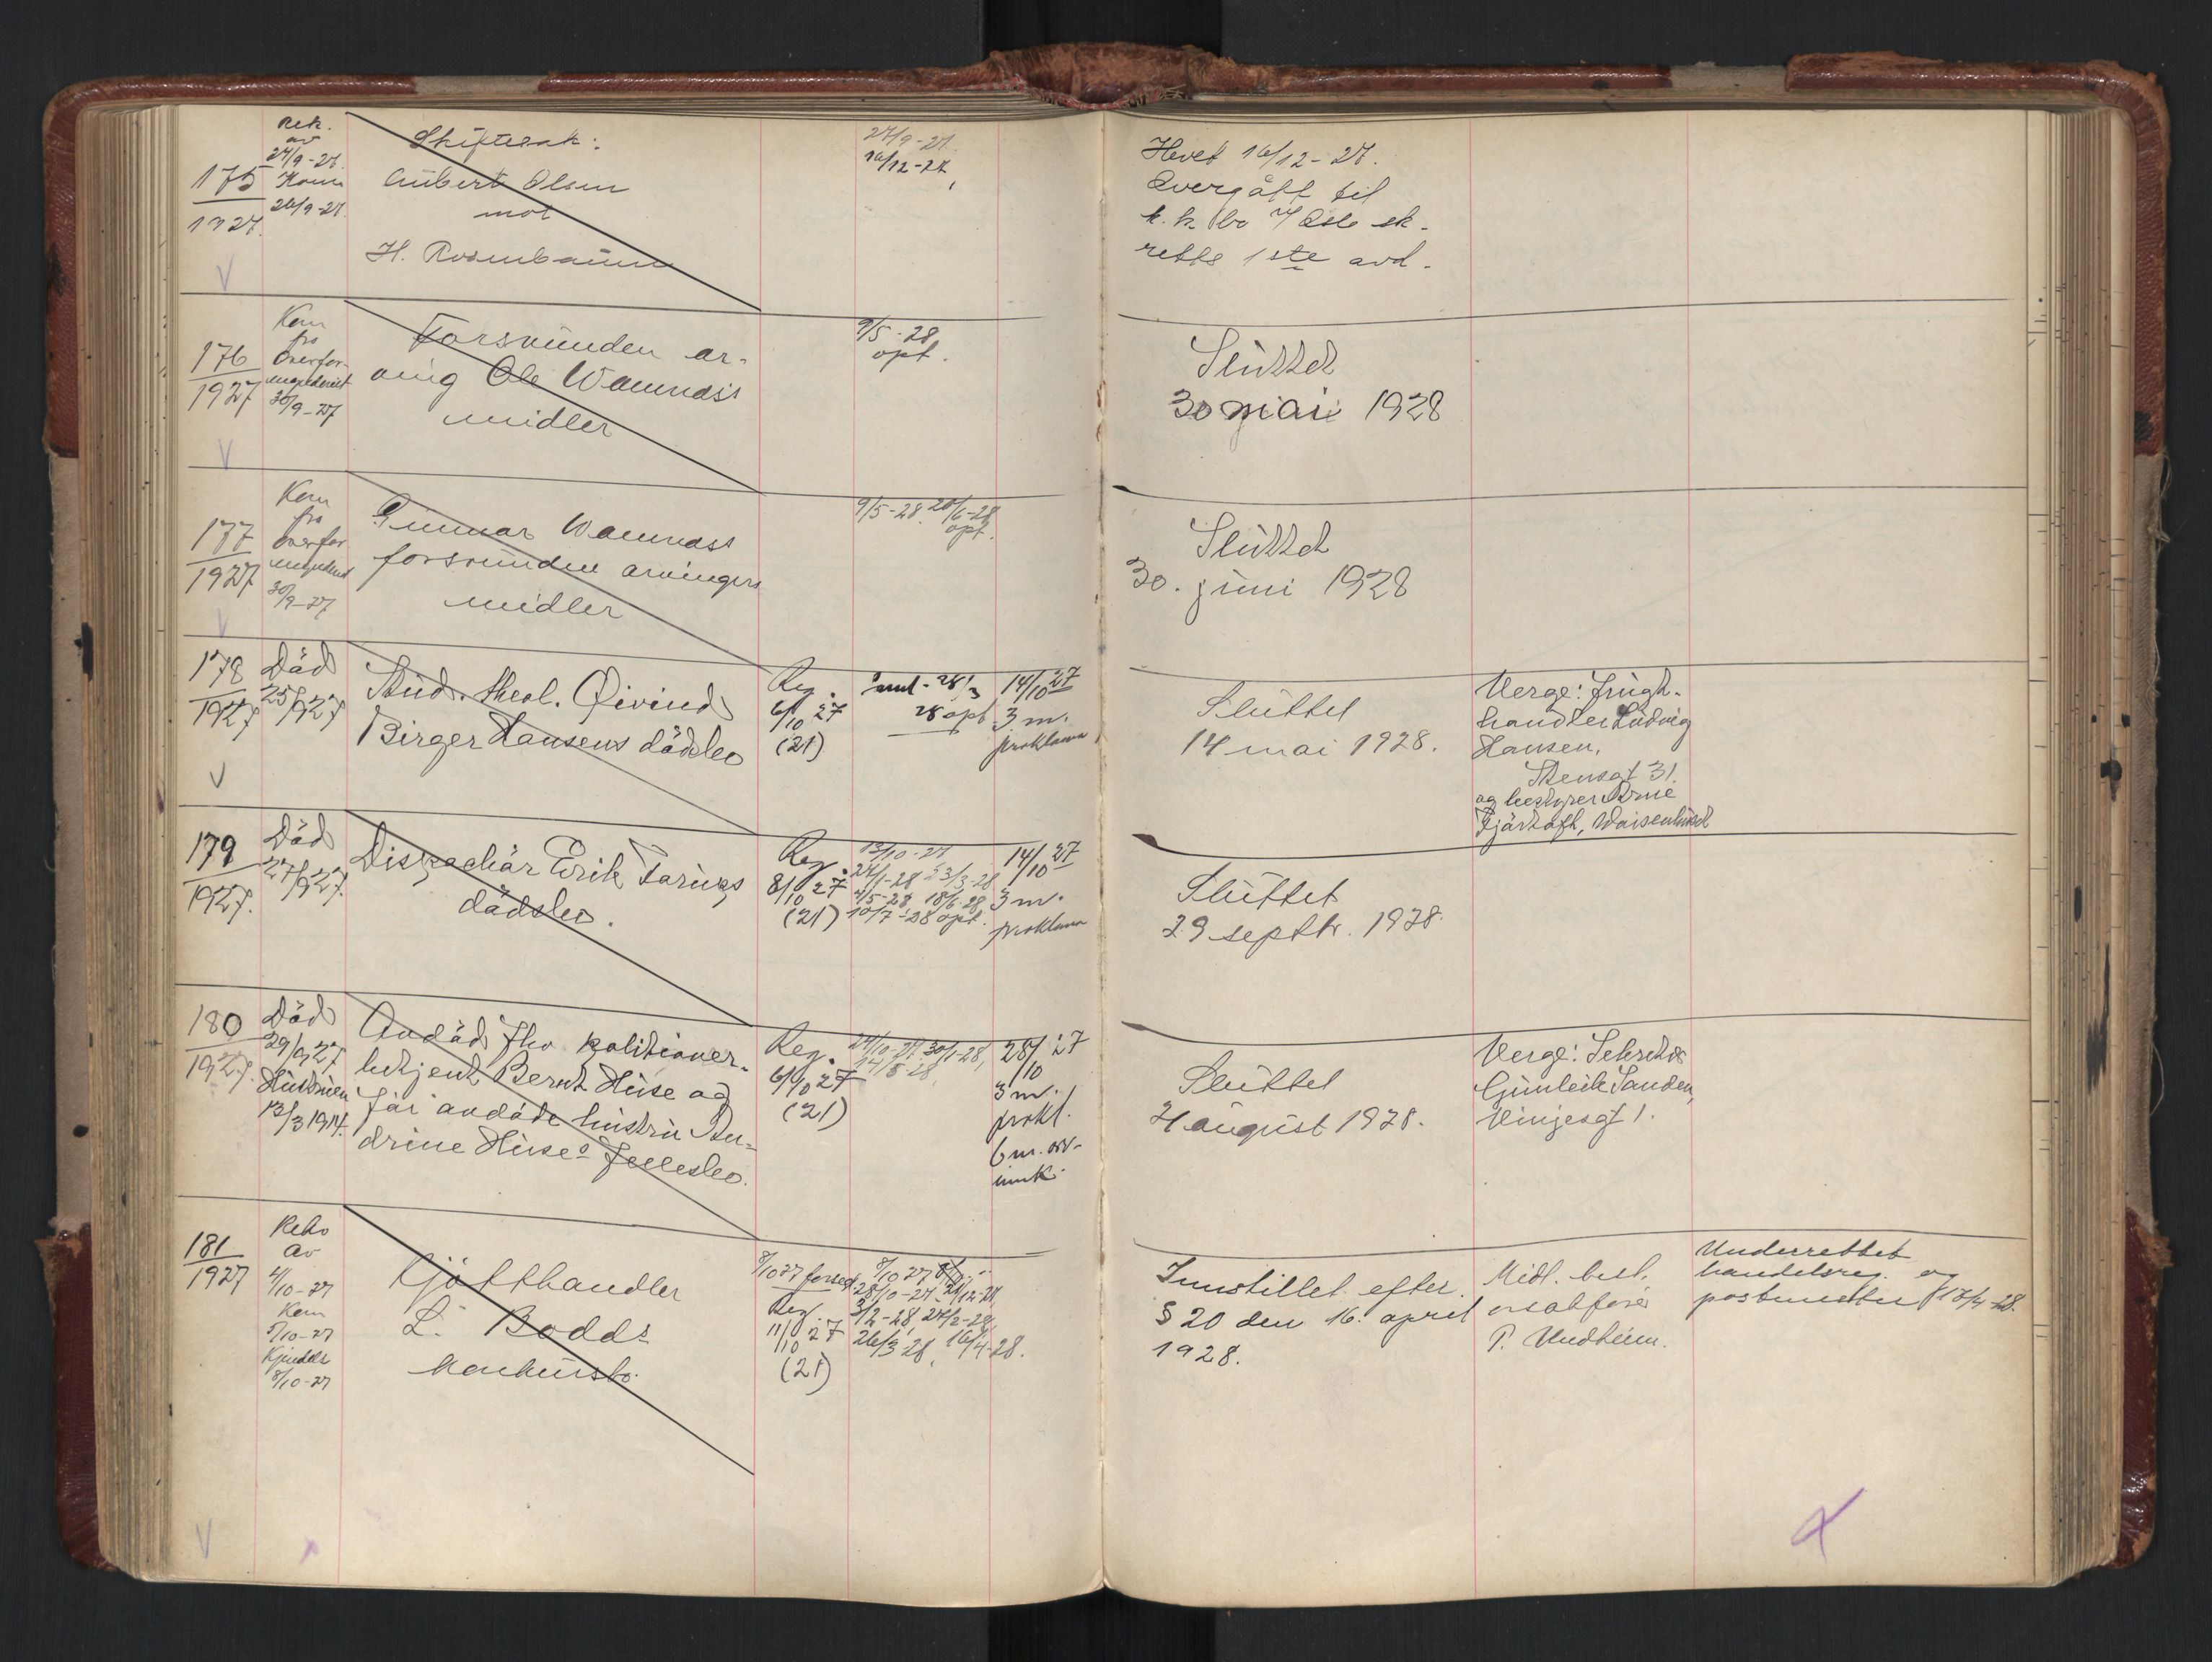 175
1927.
Rek.
av
27/9-27.
Kom
28/9-27.
Skiftesak:
Aubert Olsen
mot
H. Rosenbaum
27/9-27.
16/12-27,
Hevet 16/12-27.
Overgått til
k.k. bo v/ Oslo sk.
retts 1ste avd.
176
1927
Kom
fra
Overfor-
30/9-27
Forsvunden ar-
ving Ole Wamnæss
midler
9/5-28
opt.
Sluttet
30 mai 1928
177
1927
Kom
fra
Overfor
30/9-27
Gunnar Wamnæss
forsvunden arvingers
midler
9/5-28. 20/6-28
opt.
Sluttet
30. juni 1928
178
1927
Död
25/9 27
Stud. theol. Øivind
Birger Hansens dödsbo
Reg.
6/10 27
(21)
Saml - 28/3
28 opt.
14/10 27
3 m.
proklama
Sluttet
14 mai 1928.
Verge: frugt-
handler Ludvig
Hansen,
Stensgt 31.
og bestyrer Arne
Fjärtoft, Waisenhuset
179
1927.
Död
27/9 27.
Dispachör Erik Tarugs
dödsbo.
Reg.
8/10 27
(21)
13/10-27
24/1-28 23/3-28
4/5-28 18/6-28
10/7-28 opt.
14/10 27
3 m.
proklama
Sluttet
29 septbr. 1928.
180
1927.
Död
29/9 27.
Hustruen
13/3 1914.
Avdöd fhv. politiover-
betjent Bernt Huse og
för avdöde hustru An-
drine Huses fellesbo.
Reg.
6/10 27
(21)
24/10-27, 30/1-28,
14/5-28,
28/10 27
3 m.
prokl.
6 m. arv-
innk.
Sluttet
4 august 1928.
Verge: Sekretær
Gunleik Sanden,
Vinjesgt 1.
181
1927
Rekv
av
4/10-27
Kom
5/10-27
Kjendels
8/10-27
Kjötthandler
L. Bodds
konkursbo.
8/10 27 forsegl.
Reg.
11/10 27
(21)
8/10 27
28/10-27, 21/12-27,
3/2-28, 24/2-28,
26/3 28, 16/4-28.
Innstillet efter
§ 20 den 16. april
1928.
Midl. best.
o.r.sakfører
P. Undheim.
Underrettet
handelsreg. og
postmester 17/4-28.